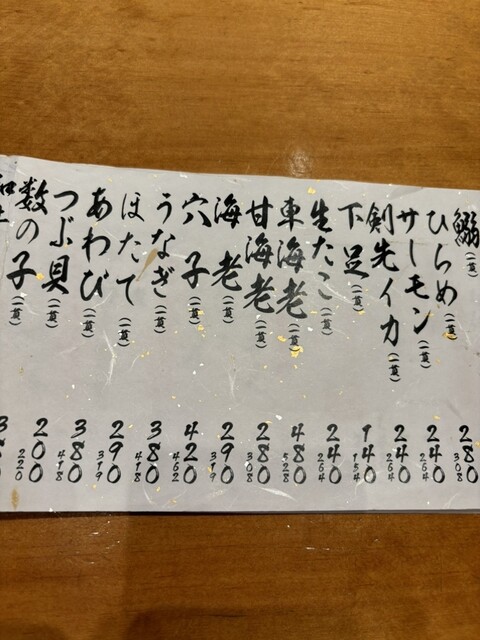 鰯(一貫)
ひらめ(一貫) 280 308
サーモン(一貫) 240 264
剣先イカ(一貫) 240 264
下足(一貫) 140 154
生たこ(一貫) 240 264
車海老(一貫) 480 528
甘海老(一貫) 280 308
海老(一貫) 290 319
穴子(一貫) 420 462
うなぎ(一貫) 380 418
ほたて(一貫) 290 319
あわび(一貫) 380 418
つぶ貝(一貫) 200 220
数の子(一貫)